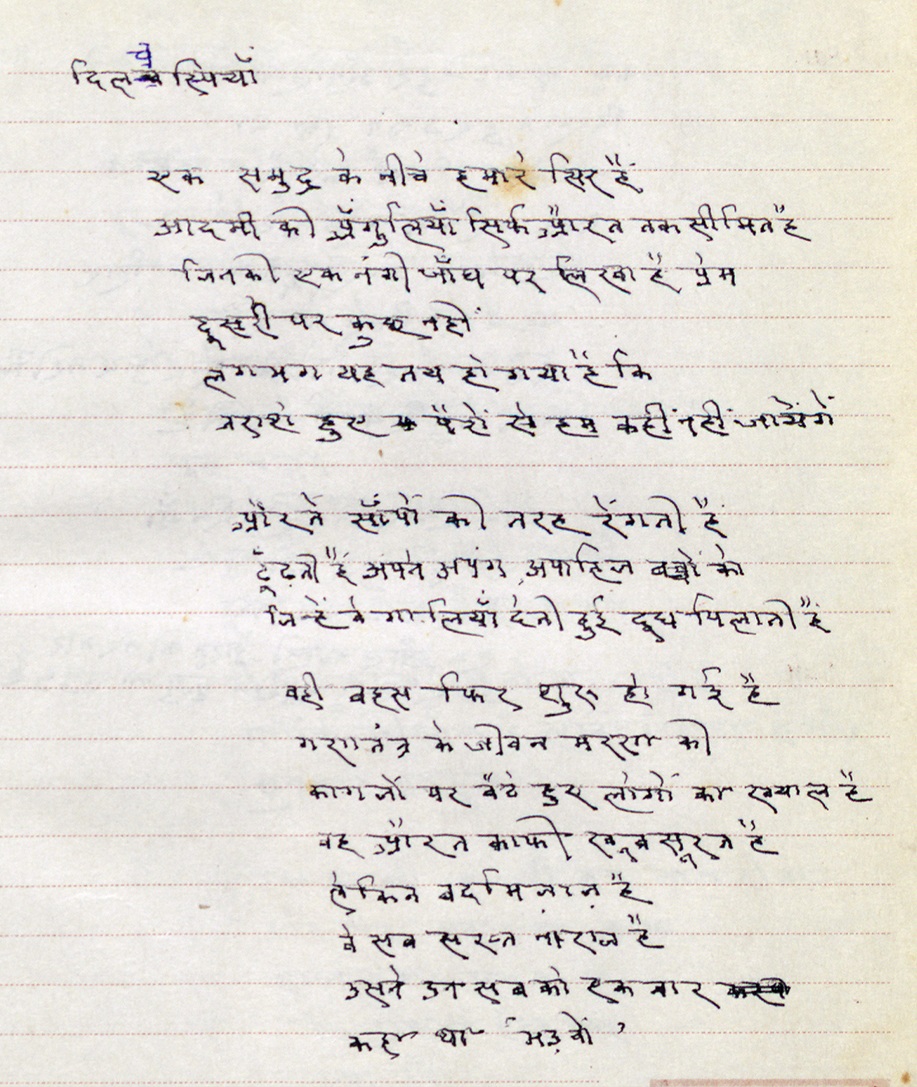 दिलचस्पियाँ
एक समुद्र के नीचे हमारे सिर हैं
आदमी की अँगुलियाँ सिर्फ औरत तक सीमित है
जिनकी एक नंगी जाँघ पर लिखा है प्रेम
दूसरी पर कुछ नहीं
लगभग यह तय हो गया है कि
तराशे हुए पैरों से हम कहीं नहीं जायेंगें
औरतें साँपों की तरह रेंगती हैं
ढूँढ़ती हैं अपने अपंग, अपाहिज बच्चों को
जिन्हें वे गालियाँ देती हुई दूध पिलाती हैं
वही बहस फिर शुरू हो गई है
गणतंत्र के जीवन मरण की
कागजों पर बैठे हुए लोगों का ख्याल है
वह औरत काफी खूबसूरत है
लेकिन बदमिजाज़ है
वे सब सख्त नाराज है
उसने उन सबको एक बार
कहा था 'भड़वों'